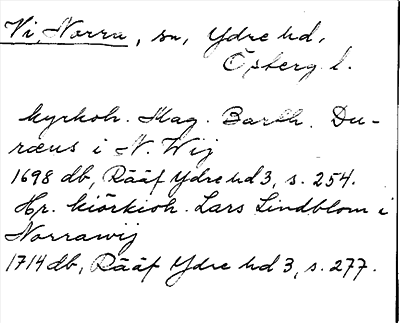 Vi, Norra, sn, Ydre hd,
Östberg l.
kyrkoh. Mag. Barth. Du-
ræus i N. Wij
1698 db, Rääf Ydre hd 3, s. 254.
Hr. kiörkioh. Lars Lindblom i
Norrawij
1714 db, Rääf Ydre hd 3, s. 277.